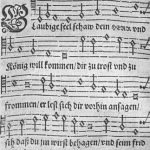 Glaubige seel schaw dein HERR vnd
König will kommen/ dir zu trost vnd zu
frommen/ er lest sich dir vorhin ansagen/
sih daß du jm wirst behagen/ vnd seim frid